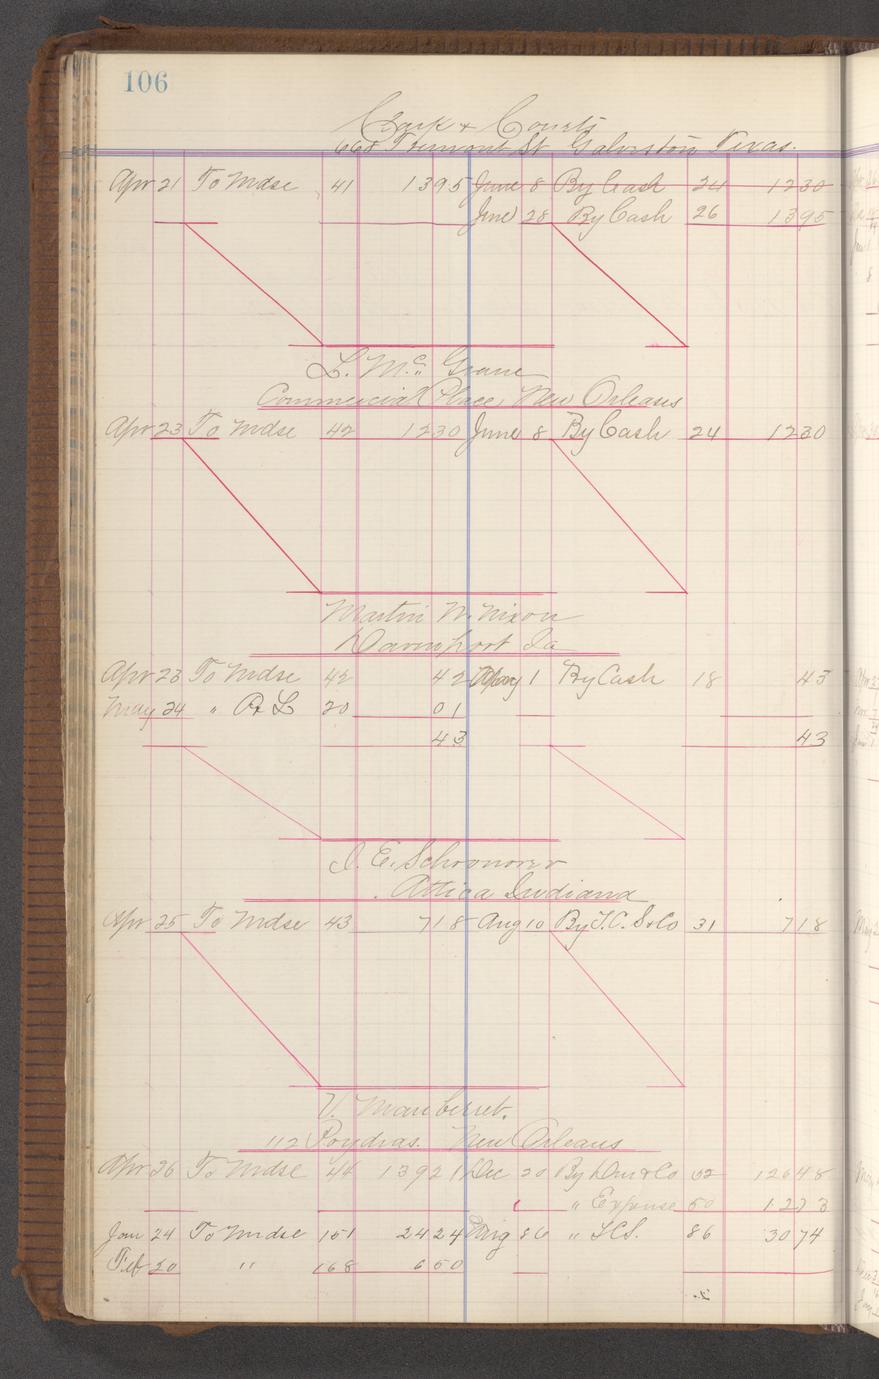 106
Clark & Courts
668 Tremont St Galveston Texas.
Apr 21 To Mdse 41 1395 June 8 By Cash 24 1230
June 28 By Cash 26 1395
L. Mc Grane
Commercial Place, New Orleans
Apr 23 To Mdse 42 1230 June 8 By Cash 24 1230
Martin W. Nixon
Davenport Ia
Apr 23 To Mdse 42 42 May 1 By Cash 18 43
May 24 " P&L 20 01
43 43
J. E. Schoonover
Attica Indiana
Apr 25 To Mdse 43 718 Aug 10 By T.C. S&Co 31 718
V.
112 Poydras. New Orleans
Apr 26 To Mdse 44 13921 Dec 20 By &Co 52 12648
" Expense 50 1273
Jan 24 To Mdse 151 2424 86 " 86 3074
Feb 20 " 168 650